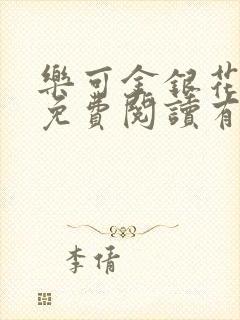 樂可金銀花
免費閱讀有
李倩